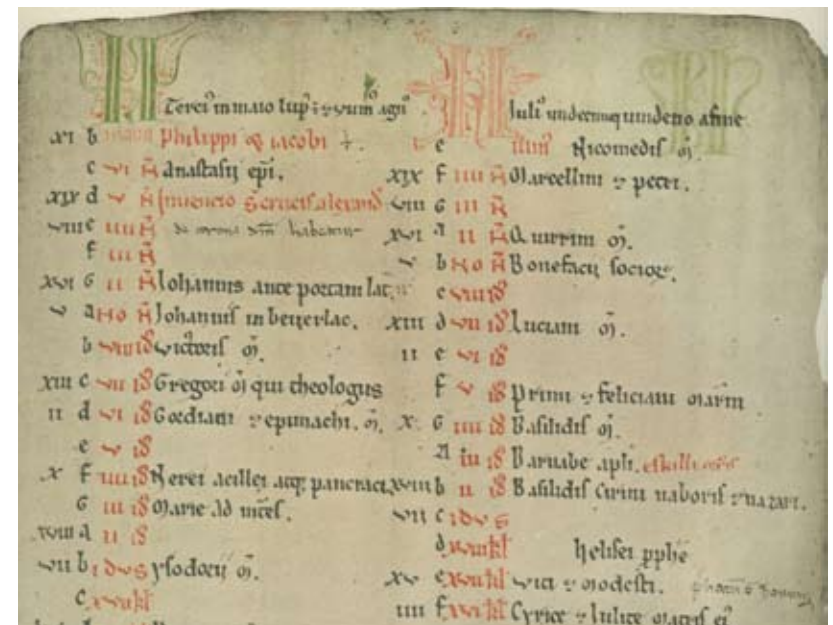 Terci᷒ in maio lup᷒ ē
xi b Philippi & iacobi
c vi N̄ Anastasij ep̄i.
xix d v N̄ Inuencio S crucis alexand
viii e iiii N̄
f iii N̄
xvi G ii N̄ Iohannis ante portam lat
v a No N̄ Iohannis in beuerlac.
b viii id victoris m̄.
xiii c vii id Gregorii m̄ qui theologus
ii d vi id Gordiani & epimachi. m̄.
e v id
x f iiii id Nerei acillei atq; pancracij
G iii id Marie ad mr̄es.
xviii a ii id
vii b idus ysodori m̄.
c xvii kl
Iulī undecimuq quindeno a fine
e iiii Nicomedis m̄.
xix f iiii N̄ Marcellini & petri.
viii G iii N̄
xvi a ii N̄ Quirini m̄.
v b No N̄ Bonefacij socior.
c viii id
xiii d vii id Luciani m̄.
ii e vi id
f v id Primi & feliciani mr̄m
x G iiii id Basilidis m̄.
a iii id Barnabe apl̄i.
xviii b ii id Basilidis Cirini naboris & nazari.
vii c idus
d xviii kl helisei pph̄e
xv e xvii kl vici & modesti.
iiii f xvi kl Cyrice & Iulite